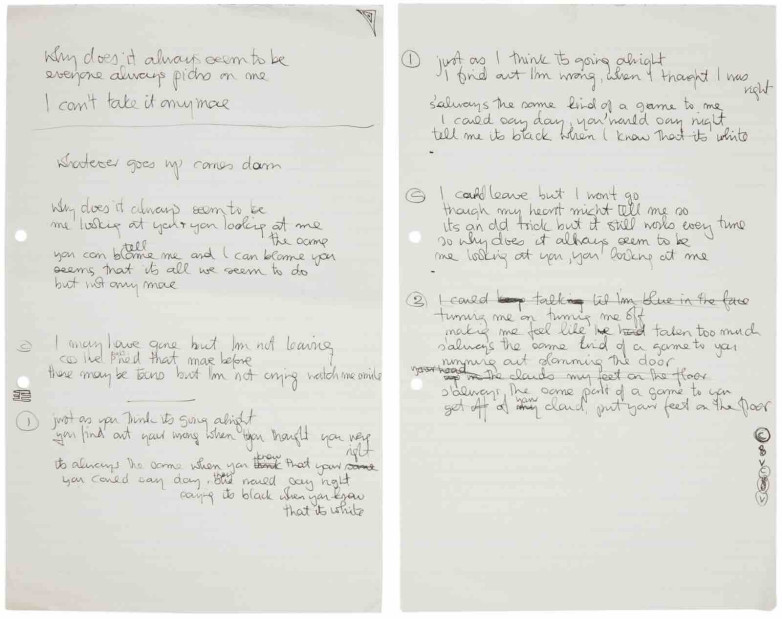 Why does it always seem to be
everyone always picks on me
I can't take it anymore
Whatever goes up comes down
Why does it always seem to be
me looking at you + you looking at me
tell the same
you can blame me and I can blame you
seems that its all we seem to do
but not any more
C
I may have gone but I'm not leaving
cos I've that move before
there may be tears but I'm not crying watch me smile
1
just as you think its going alright
you find out your wrong when you thought you were
right
its always the same when you know think that your same
you could say day, would say night
saying its black when you know
that its white
1
just as I think its going alright
I find out I'm wrong, when I thought I was
right
s'always the same kind of a game to me
I could say day, you would say night
tell me its black when I know that its white
C
I could leave but I won't go
though my heart might tell me so
its an old trick but it still works every time
so why does it always seem to be
me looking at you, you looking at me
2
I could talk til I'm blue in the face
turning me on turning me off
making me feel like had taken too much
s'always the same kind of a game to you
running out slamming the door
your head in the clouds my feet on the floor
s'always the same part of a game to you
get off of your my cloud, put your feet on the floor
C
8
V
C
8
V